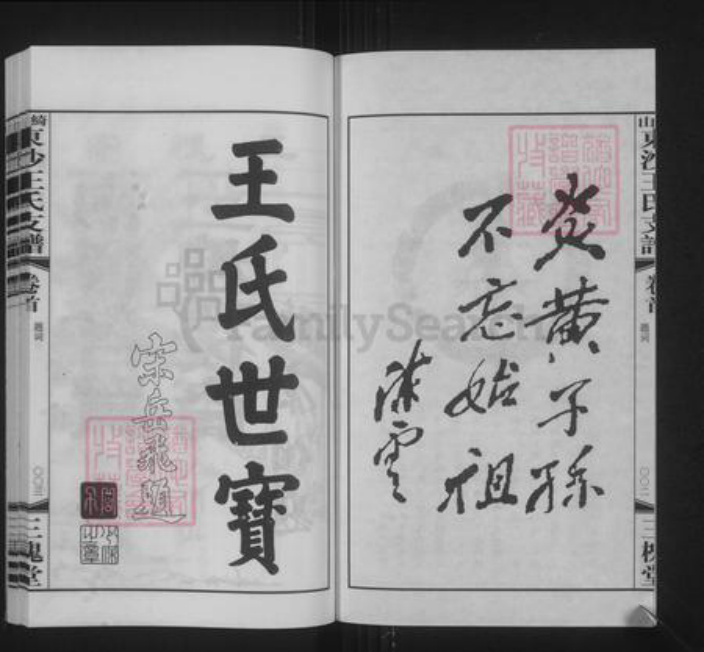 山東沙王氏支譜
卷首
題词
〇〇二
三槐堂
炎黄子孫
不忘始祖
陳雲
王氏世寶
宋岳飛題
綺東沙王氏支譜
卷首
題词
〇〇三
三槐堂
FamilySearch